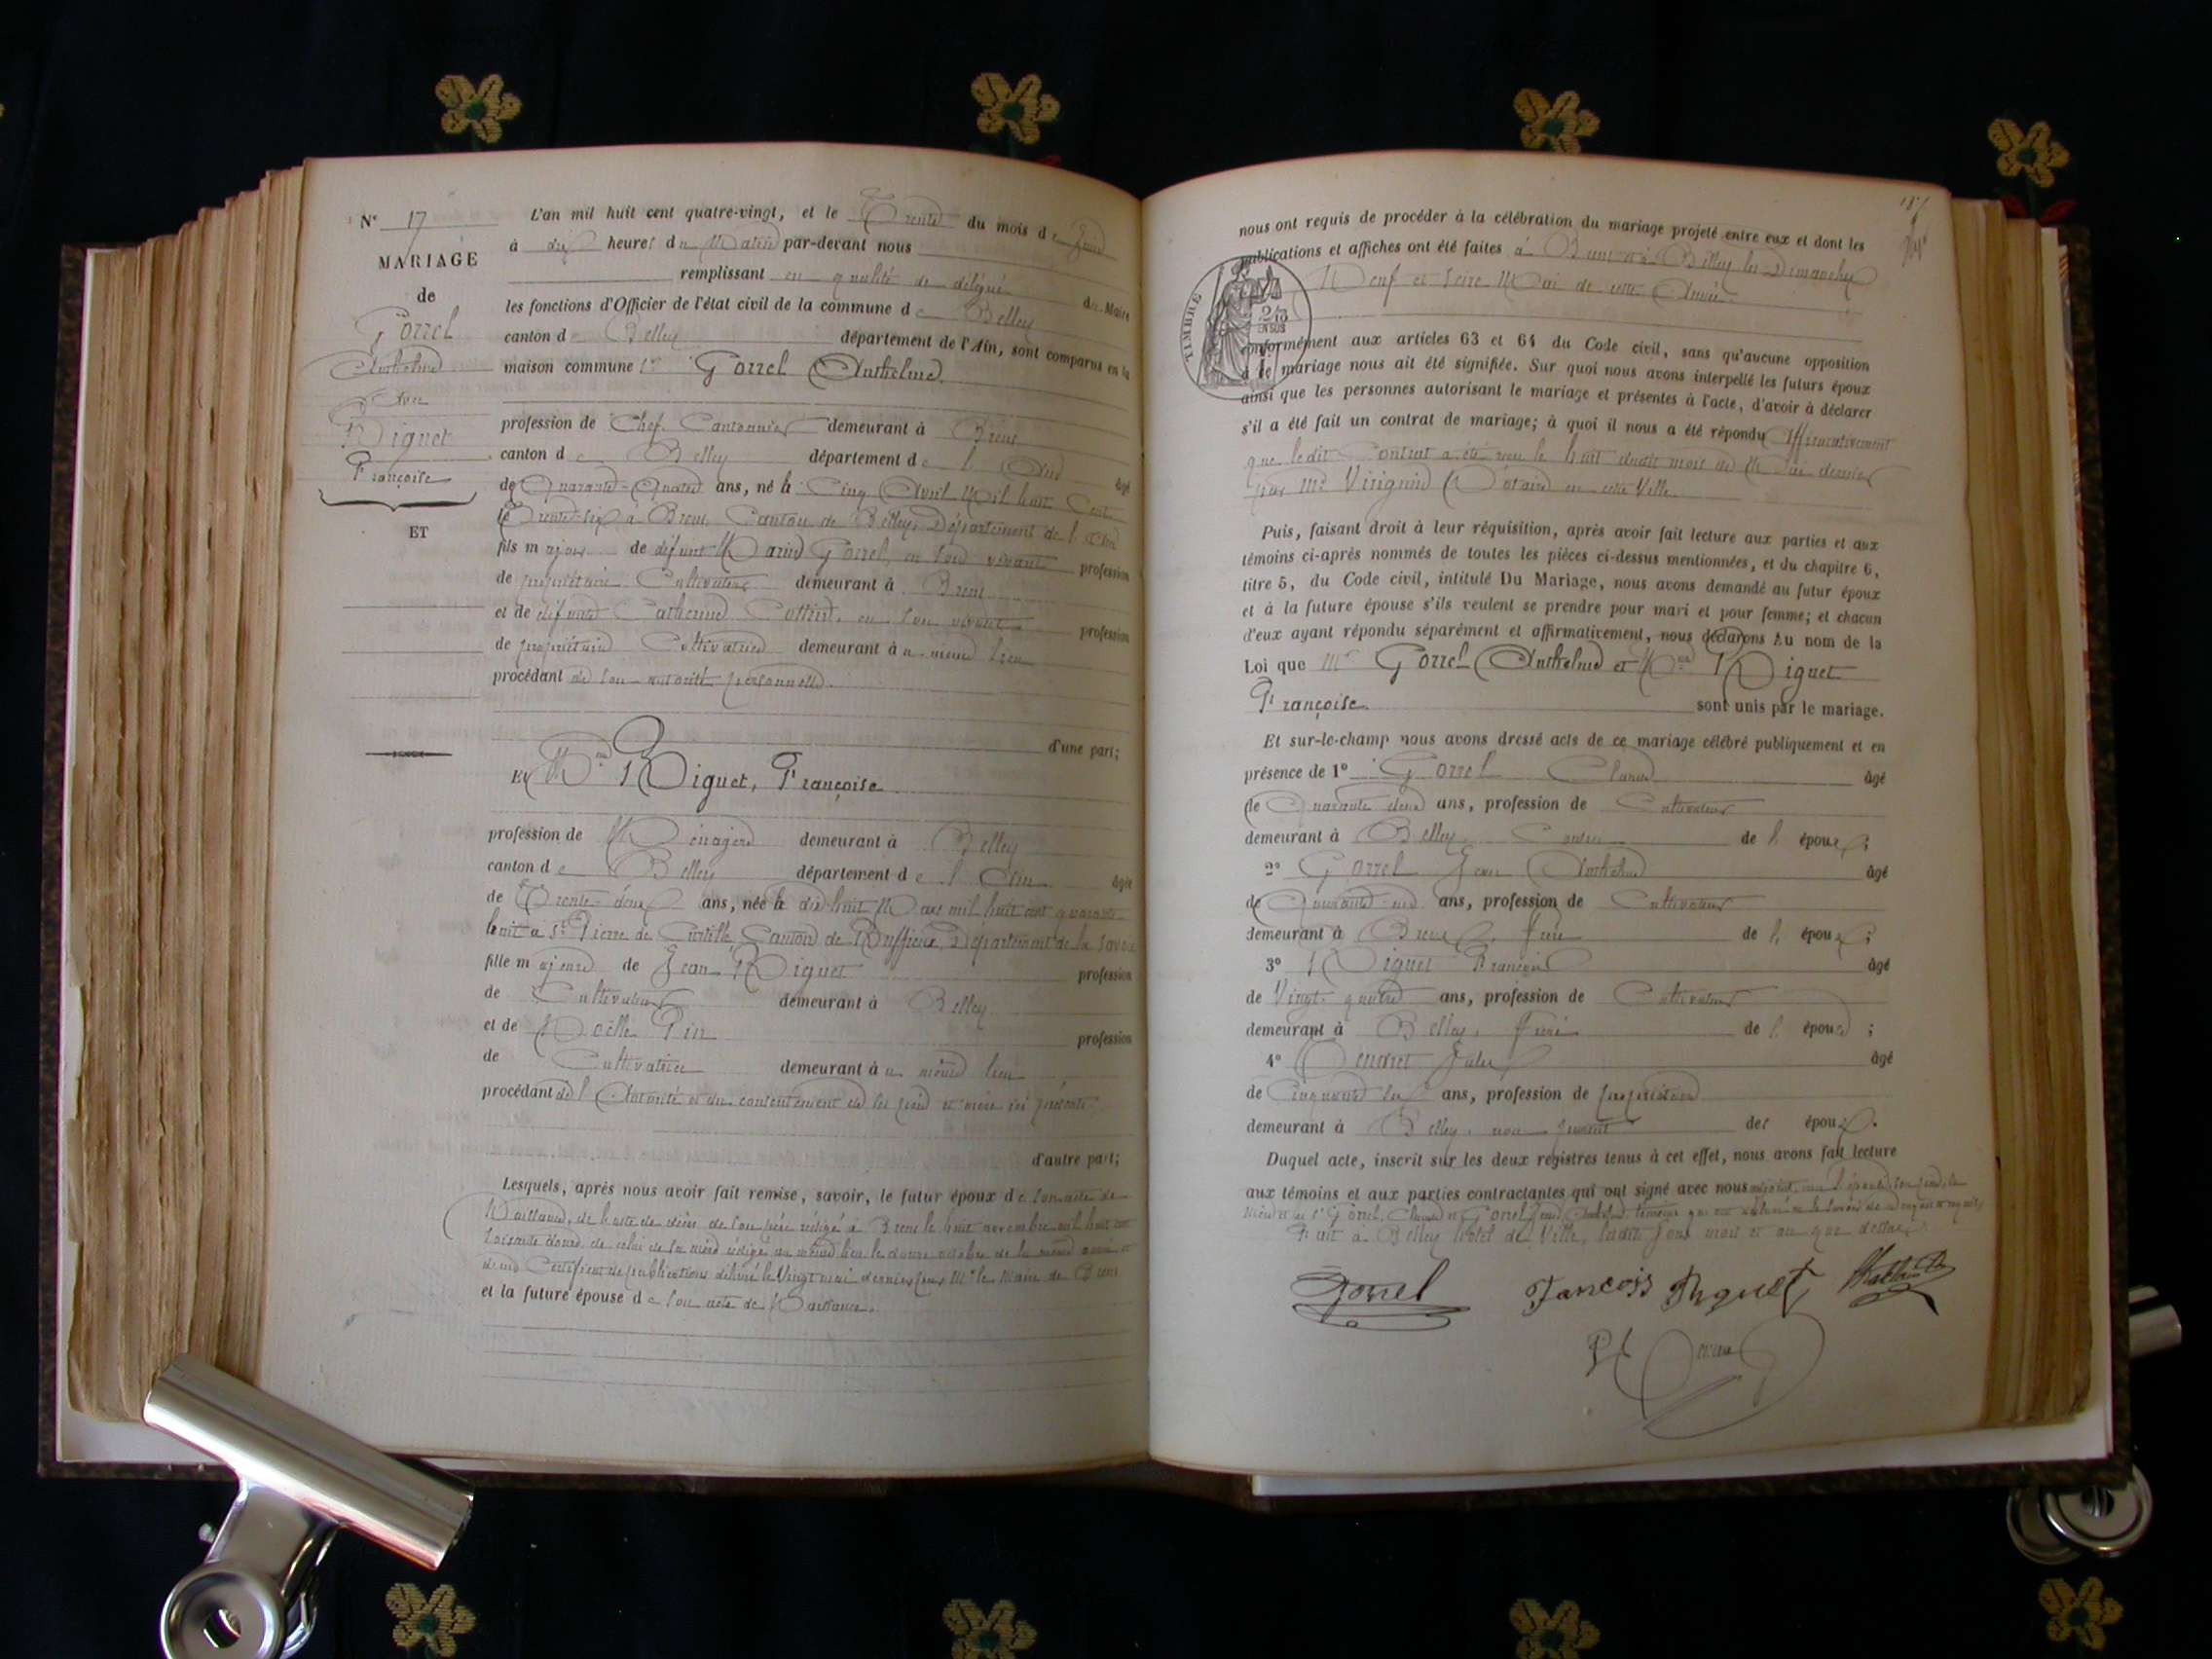 N° 17
MARIAGE
de
Gorrel
Anthelme
Avec
Riguet
Françoise
ET
L'an mil huit cent quatre-vingt, et le Trente du mois de Juin
à dix heures du Matin par-devant nous
remplissant en qualité de délégué du Maire
les fonctions d'Officier de l'état civil de la commune de Belley
canton de Belley département de l'Ain, sont comparus en la
maison commune Sr Gorrel Anthelme
profession de Chef Cantonnier demeurant à Brens
canton de Belley département de l'Ain âgé
de Quarante-Quatre ans, né le Cinq Avril Mil huit Cent
Trente-six à Brens, Canton de Belley, Département de l'Ain
fils majeur de défunt Gorrel, en son vivant profession
de propriétaire Cultivateur demeurant à Brens
et de défunte Catherine en son vivant profession
de propriétaire Cultivatrice demeurant au même lieu
procédant de son autorité personnelle
d'une part;
Et Riguet, Françoise
profession de Ménagère demeurant à Belley
canton de Belley département de l'Ain âgée
de Trente-deux ans, née le dix huit Mars mil huit cent quarante
huit à St Pierre de Curtille, Canton de Ruffieux, Département de la Savoie
fille majeure de Jean Riguet profession
de Cultivateur demeurant à Belley
et de Noëlle Pin profession
de Cultivatrice demeurant au même lieu
procédant de l'Autorité et du consentement de ses père et mère ici présents
d'autre part;
Lesquels, après nous avoir fait remise, savoir, le futur époux de son acte de
Naissance, de l'acte de décès de son père rédigé à Brens le huit novembre mil huit cent
soixante douze, de celui de sa mère rédigé au même lieu le douze octobre de la même année et
d'un Certificat de publications délivré le Vingt mai dernier par Mr le Maire de Brens
et la future épouse de son acte de Naissance.
nous ont requis de procéder à la célébration du mariage projeté entre eux et dont les
publications et affiches ont été faites à Brens et à Belley les Dimanches
Neuf et Seize Mai de cette Année
TIMBRE
conformément aux articles 63 et 64 du Code civil, sans qu'aucune opposition
à ce mariage nous ait été signifiée. Sur quoi nous avons interpellé les futurs époux
ainsi que les personnes autorisant le mariage et présentes à l'acte, d'avoir à déclarer
s'il a été fait un contrat de mariage; à quoi il nous a été répondu Affirmativement
que ledit Contrat a été reçu le huit dudit mois de Mai dernier
par Me Virignin Notaire en cette Ville
Puis, faisant droit à leur réquisition, après avoir fait lecture aux parties et aux
témoins ci-après nommés de toutes les pièces ci-dessus mentionnées, et du chapitre 6,
titre 5, du Code civil, intitulé Du Mariage, nous avons demandé au futur époux
et à la future épouse s'ils veulent se prendre pour mari et pour femme; et chacun
d'eux ayant répondu séparément et affirmativement, nous déclarons Au nom de la
Loi que Mr Gorrel Anthelme et Riguet
Françoise sont unis par le mariage.
Et sur-le-champ nous avons dressé acte de ce mariage célébré publiquement et en
présence de 1° Gorrel Claude âgé
de Quarante deux ans, profession de Cultivateur
demeurant à Belley, Cousin de l'époux;
2° Gorrel Jean Anthelme âgé
de Quarante-un ans, profession de Cultivateur
demeurant à Brens, frère de l'époux;
3° Riguet François âgé
de Vingt-quatre ans, profession de Cultivateur
demeurant à Belley, frère de l'épouse;
4° Jules âgé
de Cinquante ans, profession de propriétaire
demeurant à Belley, non parent des époux.
Duquel acte, inscrit sur les deux registres tenus à cet effet, nous avons fait lecture
aux témoins et aux parties contractantes qui ont signé avec nous non l'épouse, son père, sa
mère et les Srs Gorrel, Claude et Gorrel Jean Anthelme témoins qui ont déclaré ne le savoir de ce requis
Fait à Belley Hôtel de Ville, ledit jour mois et an que dessus
Gorrel François Riguet